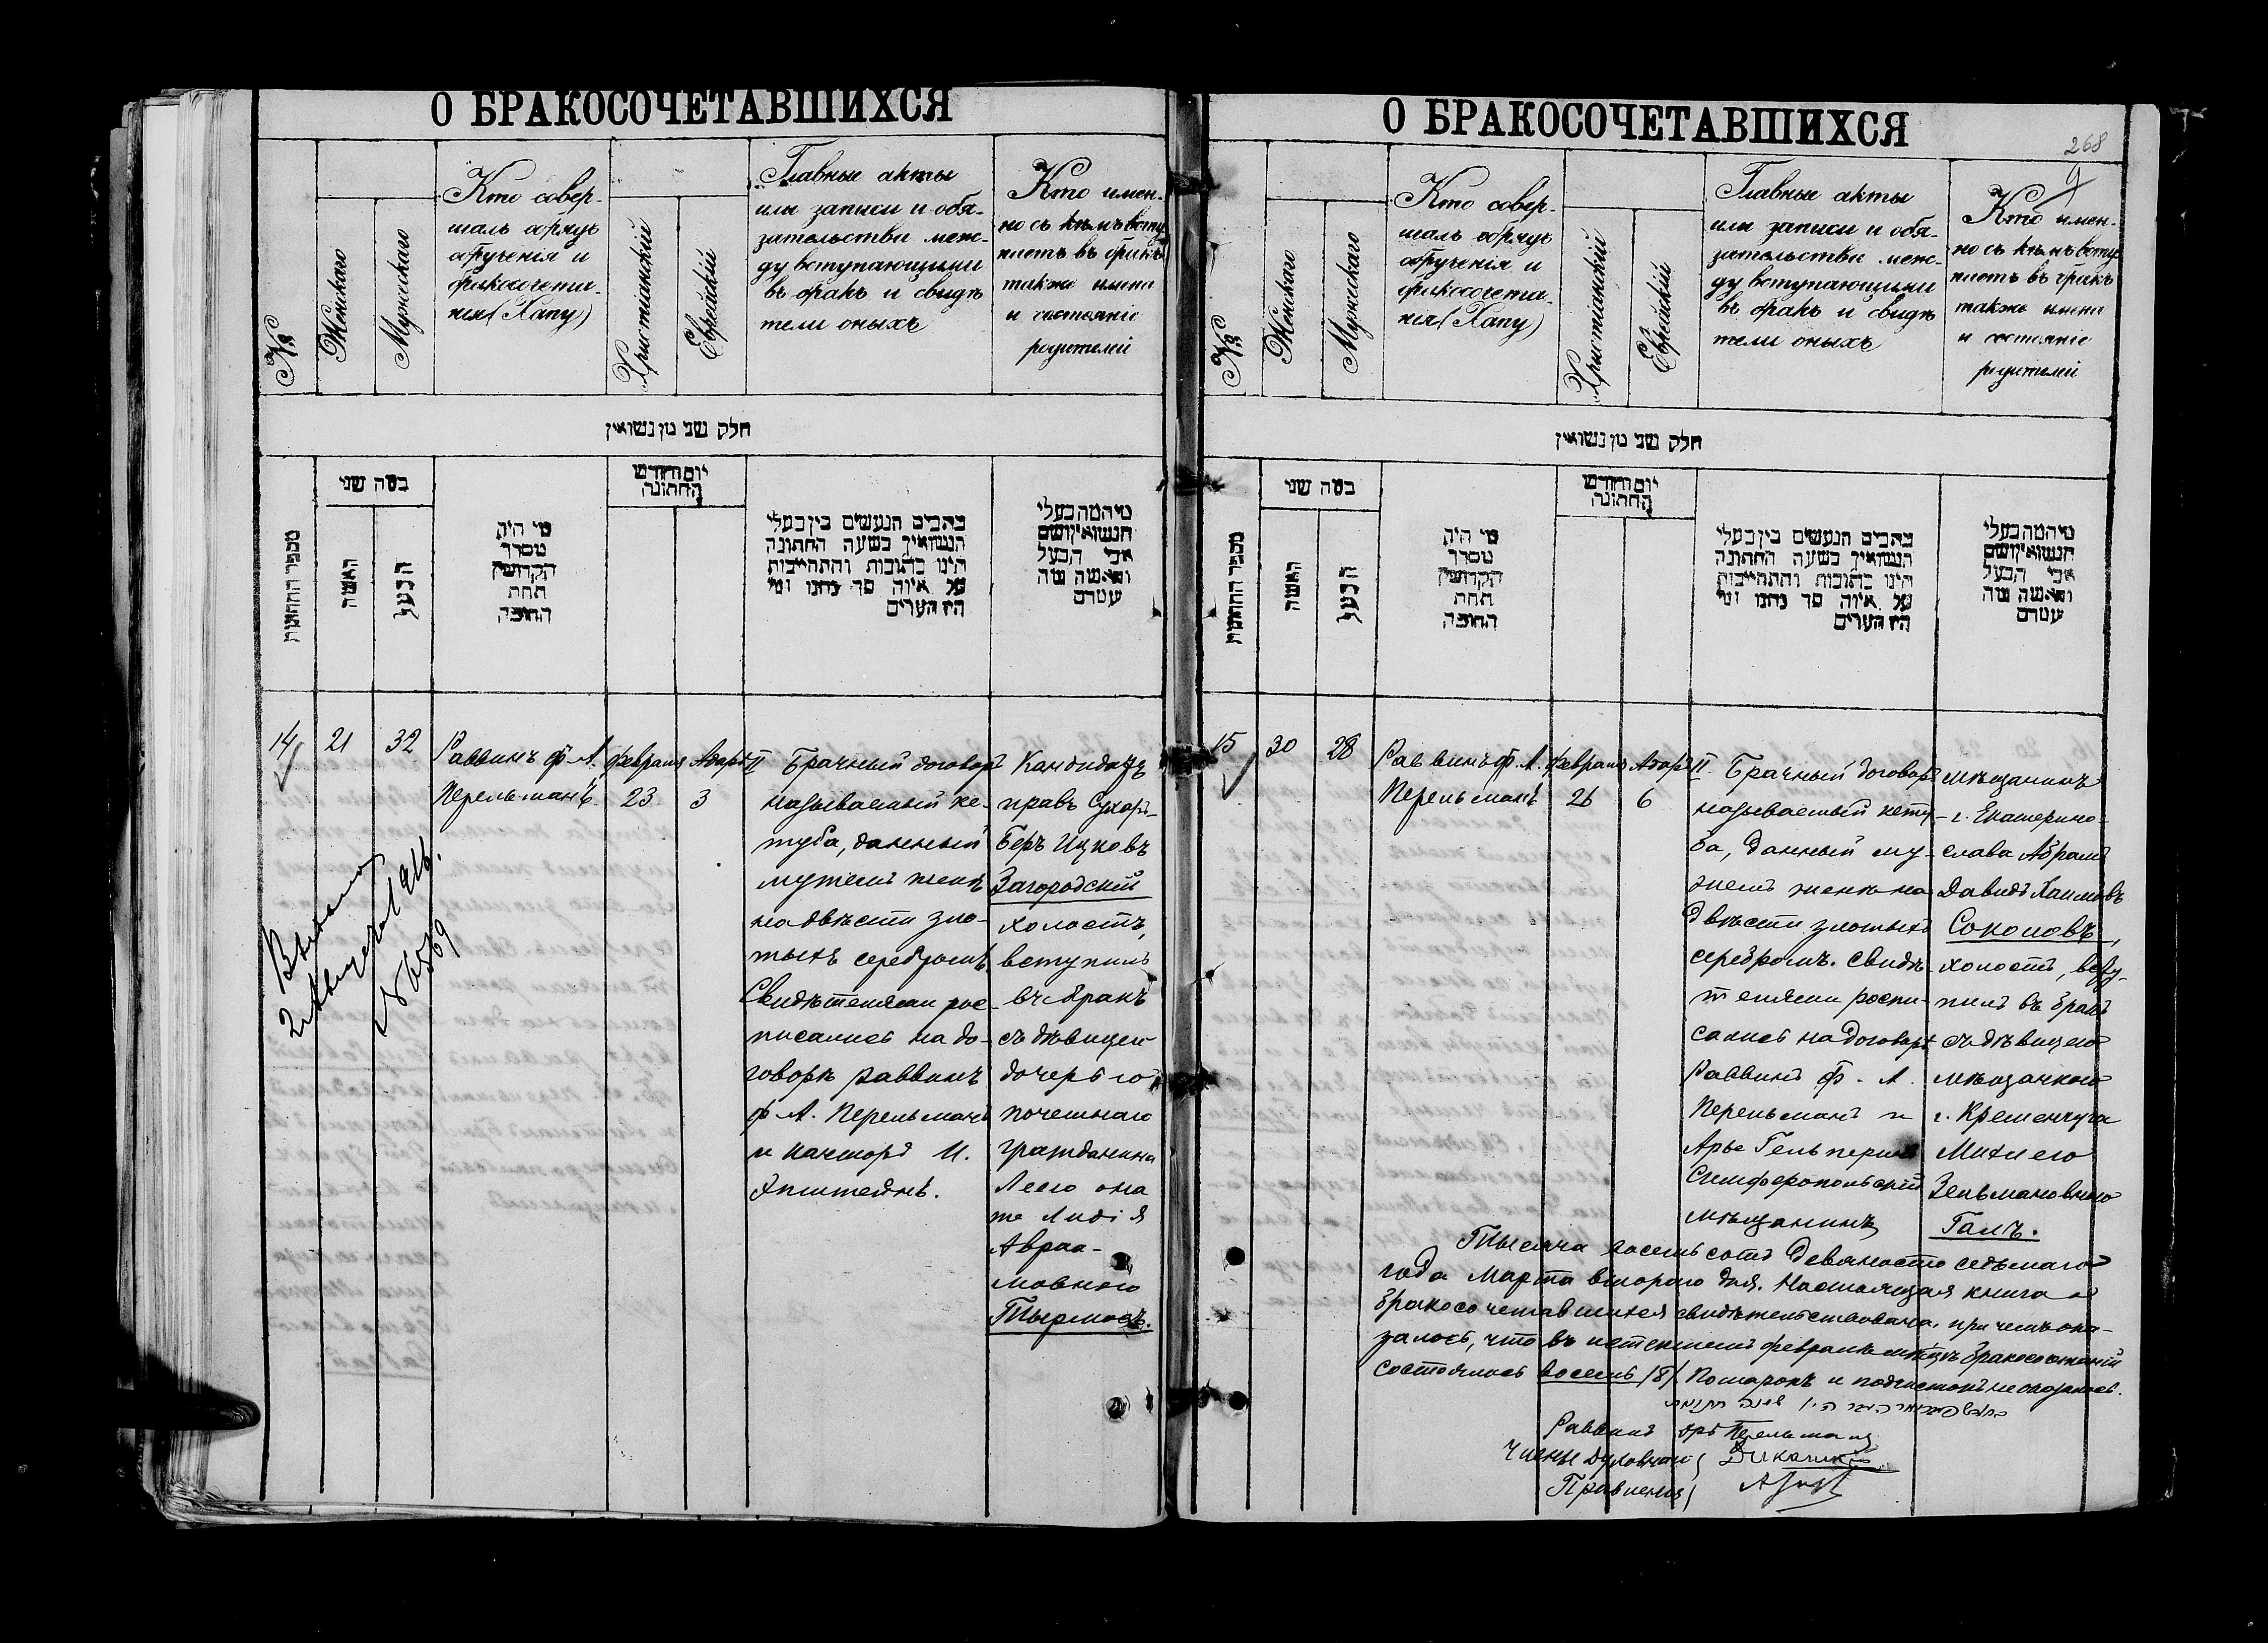 О БРАКОСОЧЕТАВШИХСЯ
№
Женскаго
Мужескаго
Кто совер-
шалъ обрядъ
обрученія и
бракосочета-
нія (Хапу)
Христіанскій
Еврейскій
Главные акты
или записи и обя-
зательства меж-
ду вступающими
въ бракъ и свидѣ
тели оныхъ
Кто имен-
но съ кѣмъ всту
паетъ въ бракъ
также имена
и состояніе
родителей
חלק שני מן נשואין
מספר החתונות
כמה שני
האשה
הבעל
מי היה
מסדר
הקדושין
תחת
החופה
יום וחודש
החתונה
כתבים הנעשים בין בעלי
הנשואין בשעה החתונה
היינו כתובות והתחייבות
על איזה סך נתנו ומי
היו הערים
מי המה בעלי
הנשואין ושם
אבי הבעל
והאשה
14
21
32
Раввинъ ф-А.
Перельманъ
Февраля
23
Адаръ II
3
Брачный договоръ
называемый ке-
туба, данный
мужемъ женѣ
на двѣсти зло-
тыхъ серебромъ
Свидѣтелями рос-
писались на до-
говорѣ раввинъ
ф-А. Перельманъ
и канторъ И.
Эпштейнъ.
Кандидатъ
правъ Сухаръ-
Беръ Ицковъ
Загородскій
холостъ,
вступилъ
въ бракъ
съ дѣвицею
дочерью
почетнаго
гражданина
Леею она
же Лидія
Авраа-
мовною
Тырмосъ.
№ 6569
О БРАКОСОЧЕТАВШИХСЯ
268
9
№
Женскаго
Мужескаго
Кто совер-
шалъ обрядъ
обрученія и
бракосочета-
нія (Хапу)
Христіанскій
Еврейскій
Главные акты
или записи и обя-
зательства меж-
ду вступающими
въ бракъ и свидѣ
тели оныхъ
Кто имен-
но съ кѣмъ всту
паетъ въ бракъ
также имена
и состояніе
родителей
חלק שני מן נשואין
מספר החתונות
כמה שני
האשה
הבעל
מי היה
מסדר
הקדושין
תחת
החופה
יום וחודש
החתונה
כתבים הנעשים בין בעלי
הנשואין בשעה החתונה
היינו כתובות והתחייבות
על איזה סך נתנו ומי
היו הערים
מי המה בעלי
הנשואין ושם
אבי הבעל
והאשה
15
30
28
Раввинъ ф. А.
Перельманъ
Февраля
26
Адаръ II
6
Брачный договоръ
называемый кету-
ба, данный му-
жемъ женѣ на
двѣсти злотыхъ
серебромъ. Свидѣ-
телями роспи-
сались на договорѣ
Раввинъ ф. А.
Перельманъ и
Арье Гельперинъ
Симферопольскій
мѣщанинъ
мѣщанинъ
г. Екатерино-
слава Абрамъ
Давидъ Хаимовъ
Соколовъ,
холостъ, всту-
пилъ въ бракъ
съ дѣвицею
мѣщанкою
г. Кременчуга
Михлею
Зельмановною
Гамъ.
Тысяча восемьсотъ девяносто седьмаго
года Марта второго дня. Настоящая книга о
бракосочетавшихся свидѣтельствована, при чемъ ока-
залось, что въ истекшемъ февралѣ мѣсяцѣ бракосочетаній
состоялось восемь /8/. Помарокъ и подчистокъ не оказалось.
Раввинъ фрѣ Перельманъ
Члены Духовнаго
Правленія